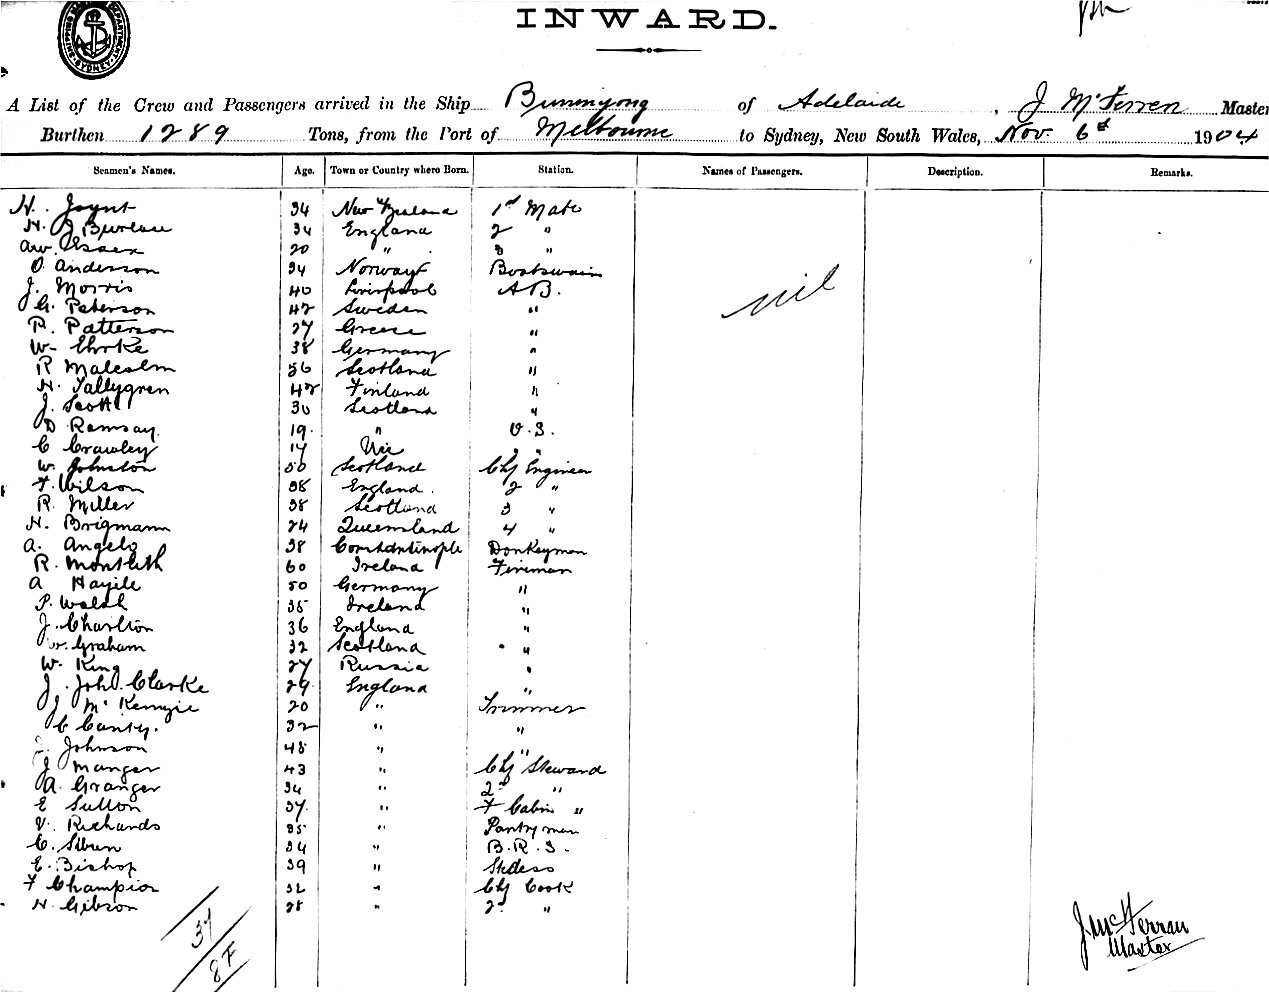 INWARD.
A List of the Crew and Passengers arrived in the Ship Buninyong of Adelaide, J McFerren Master
Burthen 1289 Tons, from the Port of Melbourne to Sydney, New South Wales, Nov. 6th 1904
Seamen's Names. Age. Town or Country where Born. Station. Names of Passengers. Description. Remarks.
H. Joynt 34 New Zealand 1st Mate
H. J Bureau 34 England 2 "
AW. Essex 20 " 3 "
O. Anderson 34 Norway Boatswain
J. Morris 40 Liverpool A B.
nil
G. Peterson 42 Sweden "
P. Patterson 27 Greece "
W- Ehrke 38 Germany "
R Malcolm 56 Scotland "
H. Tallygren 42 Finland "
J. Scott 30 Scotland "
D Ramsay 19 " O.S.
C Crawley 17 Vic "
W. Johnston 50 Scotland Chf Engineer
F. Wilson 38 England 2 "
R. Miller 38 Scotland 3 "
H. Brigmann 24 Queensland 4 "
A. Angelo 38 Constantinople Donkeyman
R. Montieth 60 Ireland Fireman
A Hayile 50 Germany "
P. Walsh 35 Ireland "
J. Charlton 36 England "
W. Graham 32 Scotland "
W. King 27 Russia "
J. John. Clarke 29 England "
J McKenzie 20 " Trimmer
C Canty. 32 " "
Johnson 48 " "
J Manger 43 " Chf Steward
A. Granger 34 " 2nd "
E Sutton 37 " F Cabin "
V. Richards 35 " Pantryman
C. Stben 34 " B.R.S.
E. Bishop 39 " Stdess
F Champion 32 " Chf Cook
H. Gibson 28 " 2nd "
37
8F
J. McFerran
Master